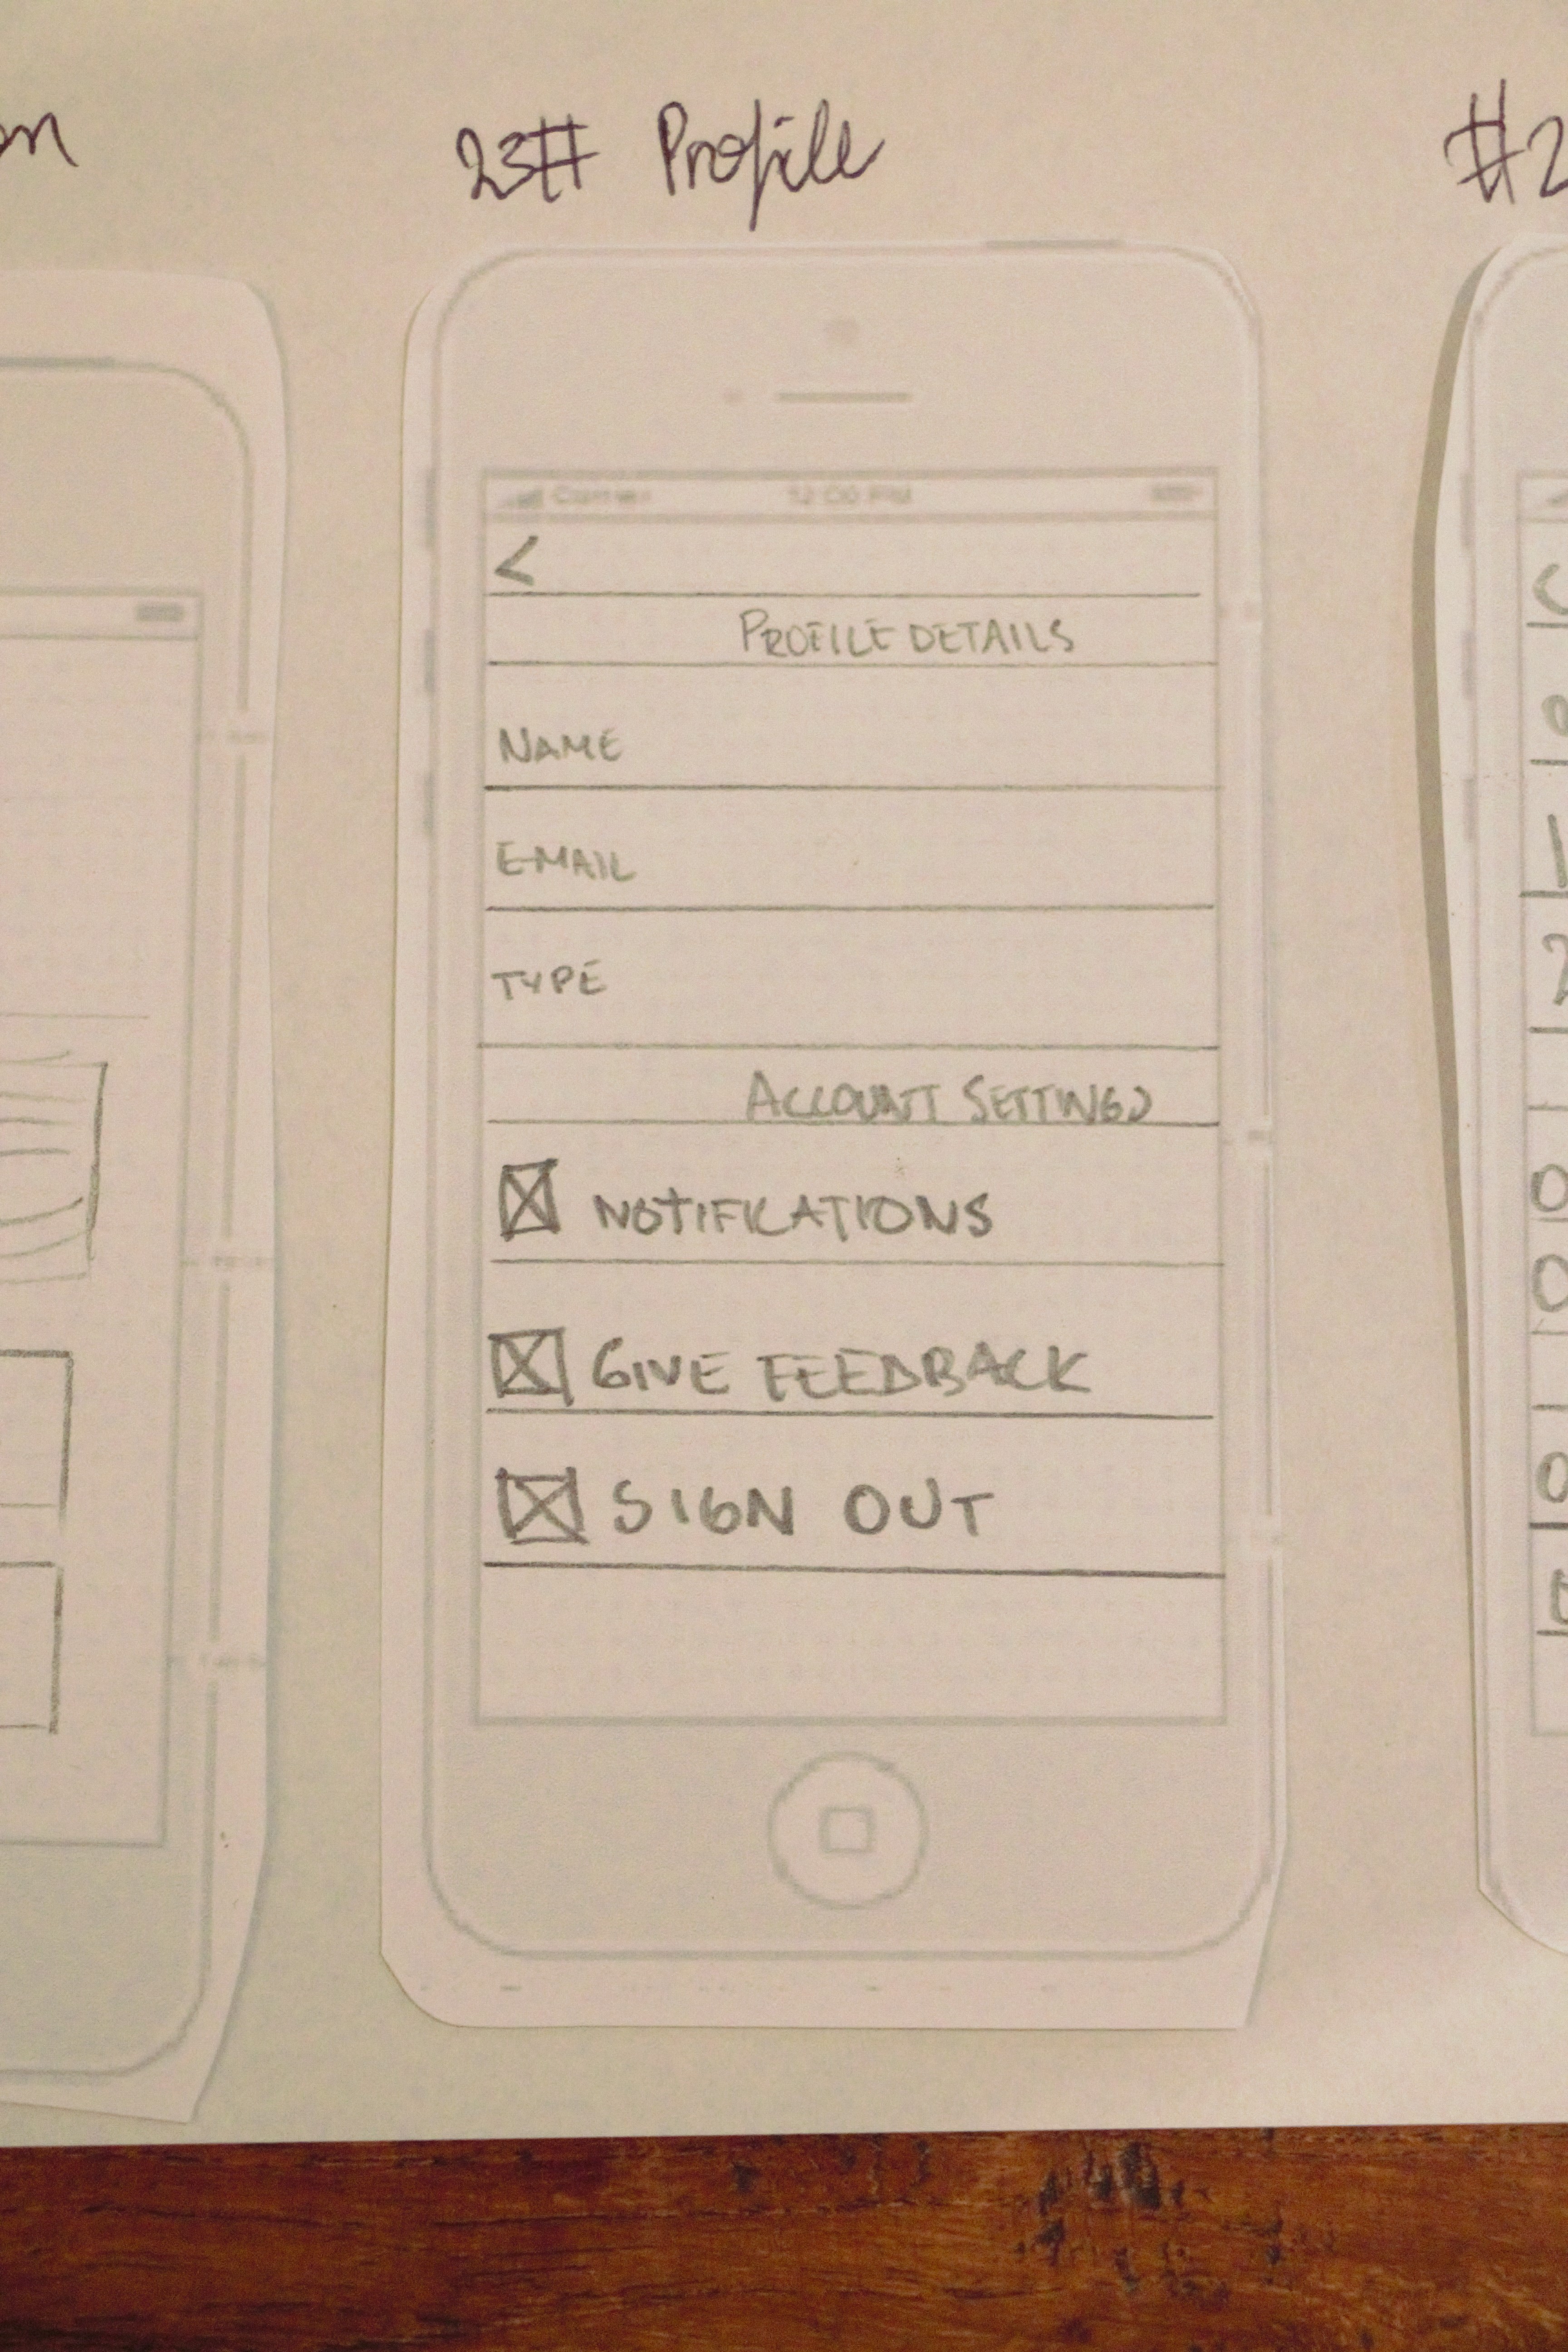 23# Profile
Carrier 12:00 PM
<
PROFILE DETAILS
NAME
EMAIL
TYPE
ACCOUNT SETTINGS
NOTIFICATIONS
GIVE FEEDBACK
SIGN OUT
#2